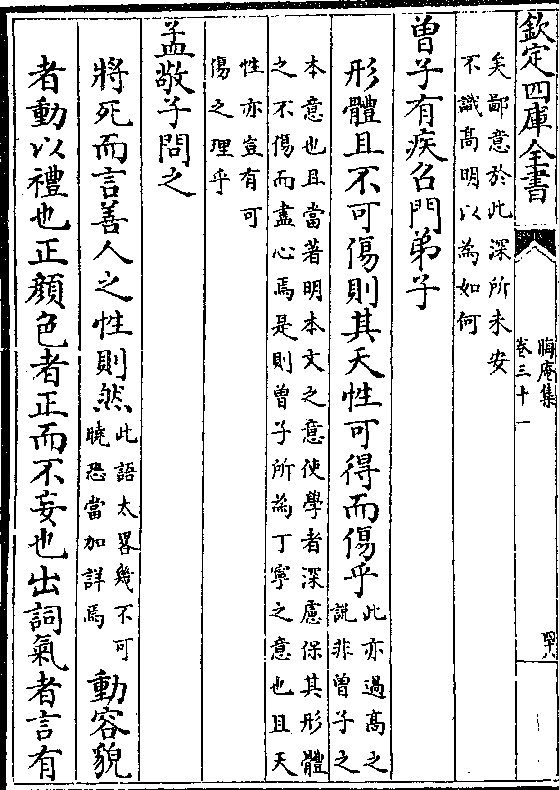 欽定四庫全書
晦庵集
卷三十一
矣鄙意於此深所未安
不識髙明以為如何
曾子有疾召門弟子
形體且不可傷則其天性可得而傷乎此亦過髙之
說非曾子之
本意也且當著明本文之意使學者深慮保其形體
之不傷而盡心焉是則曾子所為丁寧之意也且天
性亦豈有可
傷之理乎
孟敬子問之
將死而言善人之性則然此語太畧幾不可
曉恐當加詳焉
動容貌
者動以禮也正顔色者正而不妄也出詞氣者言有